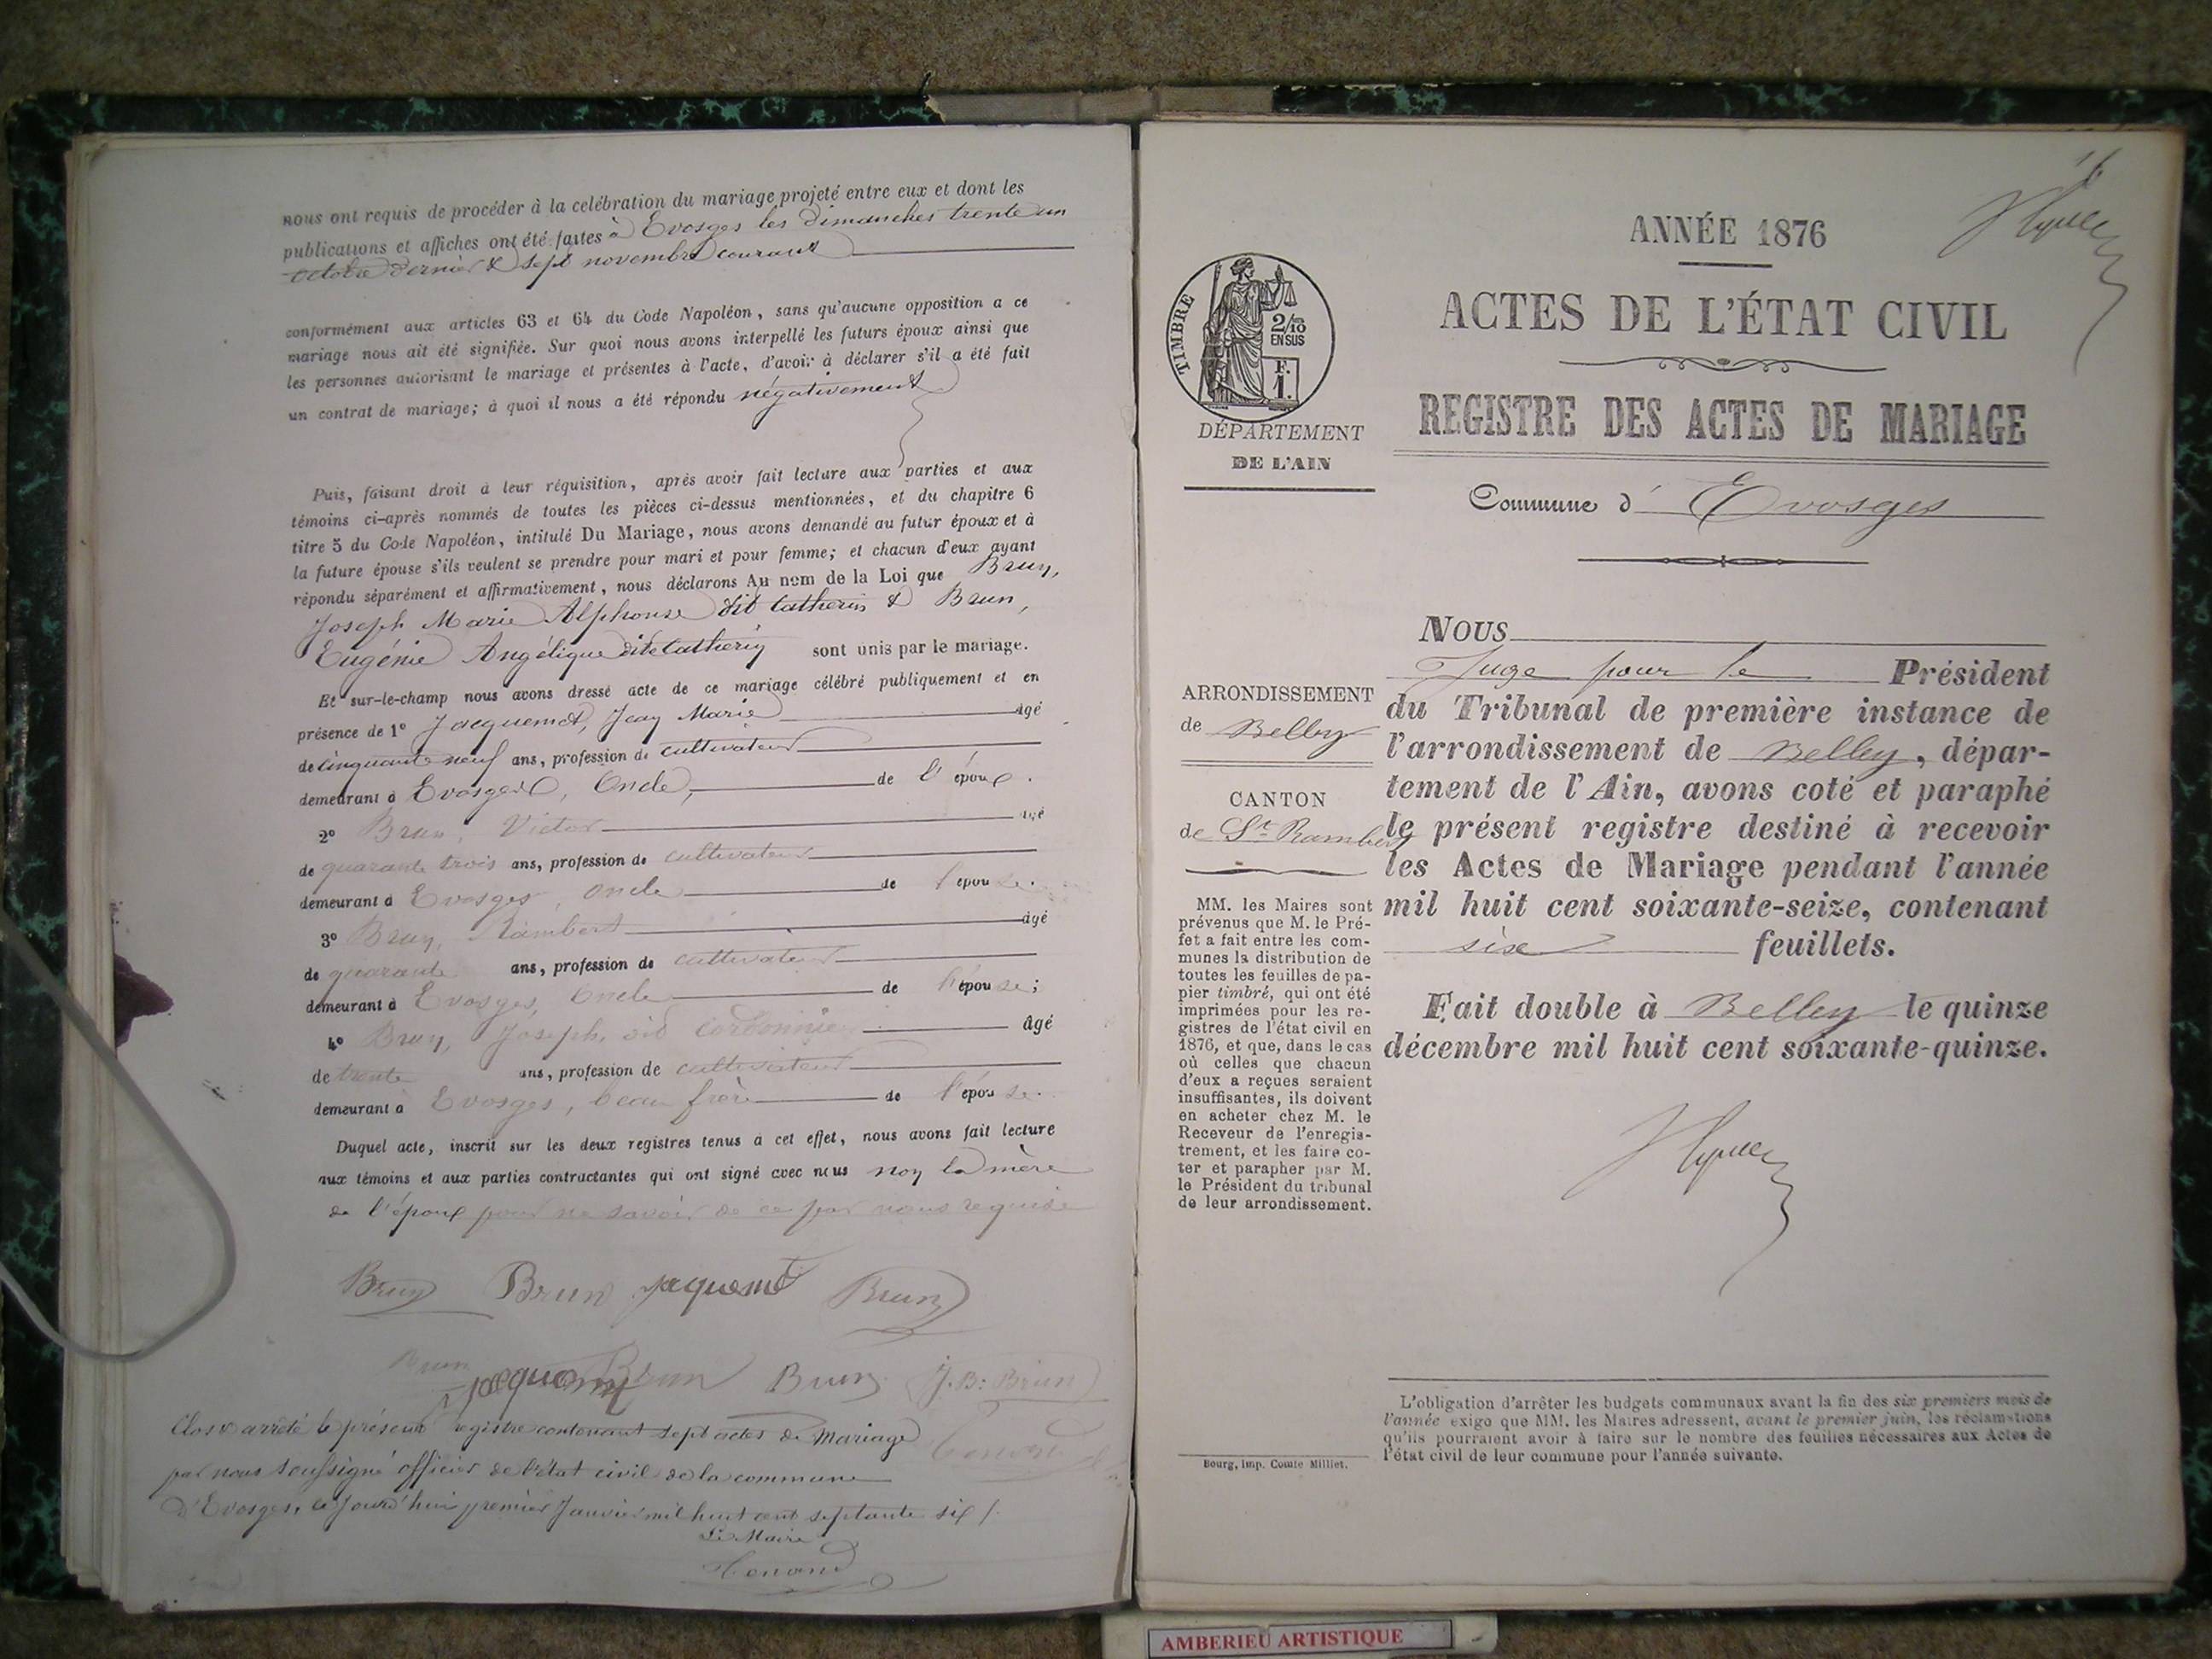 nous ont requis de procéder à la celébration du mariage projeté entre eux et dont les
publications et affiches ont été faites à Evosges les dimanches trente un
octobre dernier & sept novembre courant
conformément aux articles 63 et 64 du Code Napoléon, sans qu'aucune opposition a ce
mariage nous ait été signifiée. Sur quoi nous avons interpellé les futurs époux ainsi que
les personnes autorisant le mariage et présentes à l'acte, d'avoir à déclarer s'il a été fait
un contrat de mariage; à quoi il nous a été répondu négativement
Puis, faisant droit à leur réquisition, après avoir fait lecture aux parties et aux
témoins ci-après nommés de toutes les pièces ci-dessus mentionnées, et du chapitre 6
titre 5 du Code Napoléon, intitulé Du Mariage, nous avons demandé au futur époux et à
la future épouse s'ils veulent se prendre pour mari et pour femme; et chacun d'eux ayant
répondu séparément et affirmativement, nous déclarons Au nom de la Loi que Brun,
Joseph Marie Alphonse dit Catherin & Brun,
Eugénie Angélique dite Catherin sont unis par le mariage.
Et sur-le-champ nous avons dressé acte de ce mariage célébré publiquement et en
présence de 1° Jacquemet, Jean Marie âgé
de cinquante neuf ans, profession de cultivateur
demeurant à Evosges, Oncle, de l'époux.
2° Brun, Victor âgé
de quarante trois ans, profession de cultivateur
demeurant à Evosges, oncle de l'épouse.
3° Brun, Rambert âgé
de quarante ans, profession de cultivateur
demeurant à Evosges, Oncle de l'épouse;
4° Brun, Joseph, dit Cordonnier âgé
de trente ans, profession de cultivateur
demeurant à Evosges, beau frère de l'épouse.
Duquel acte, inscrit sur les deux registres tenus à cet effet, nous avons fait lecture
aux témoins et aux parties contractantes qui ont signé avec nous non la mère
de l'époux pour ne savoir de ce par nous requise
Brun Brun Jaquemet Brun
Brun Brun Brun J. B: Brun
Clos & arrêté le présent registre contenant sept actes de Mariage
par nous soussigné officier de l'état civil de la commune
d'Evosges, ce jourd'hui premier Janvier mil huit cent septante six /.
Le Maire
ANNÉE 1876
ACTES DE L'ÉTAT CIVIL
REGISTRE DES ACTES DE MARIAGE
TIMBRE
2/10
EN SUS
F.
1.
DÉPARTEMENT
DE L'AIN
Commune d' Evosges
ARRONDISSEMENT
de Belley
CANTON
de St Rambert
MM. les Maires sont
prévenus que M. le Pré-
fet a fait entre les com-
munes la distribution de
toutes les feuilles de pa-
pier timbré, qui ont été
imprimées pour les re-
gistres de l'état civil en
1876, et que, dans le cas
où celles que chacun
d'eux a reçues seraient
insuffisantes, ils doivent
en acheter chez M. le
Receveur de l'enregis-
trement, et les faire co-
ter et parapher par M.
le Président du tribunal
de leur arrondissement.
Nous
Juge pour le Président
du Tribunal de première instance de
l'arrondissement de Belley, dépar-
tement de l'Ain, avons coté et paraphé
le présent registre destiné à recevoir
les Actes de Mariage pendant l'année
mil huit cent soixante-seize, contenant
six feuillets.
Fait double à Belley le quinze
décembre mil huit cent soixante-quinze.
L'obligation d'arrêter les budgets communaux avant la fin des six premiers mois de
l'année exige que MM. les Maires adressent, avant le premier juin, les réclamations
qu'ils pourraient avoir à faire sur le nombre des feuilles nécessaires aux Actes de
l'état civil de leur commune pour l'année suivante.
Bourg, imp. Comte Milliet.
AMBERIEU ARTISTIQUE